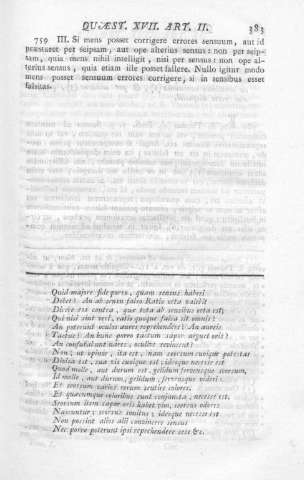 QUÆST. XVII. ART. II. 383
759 III. Si mens posset corrigere errores sensuum, aut id
præstaret per seipsam, aut ope alterius sensus: non per seip-
sam, quia mens nihil intelligit, nisi per sensus: non ope al-
terius sensus, quia etiam ille posset fallere. Nullo igitur modo
mens posset sensuum errores corrigere, si in sensibus esset
falsitas.
Quid majore fide porro, quam sensus haberi
Debet? An ab sensu falso Ratio orta valebit
Dicere eos contra, quæ tota ab sensibus orta est;
Qui nisi sint veri, ratio quoque falsa sit omnis?
An poterunt oculos aures reprehendere? An aureis
Tactus? An hunc porro tactum sapor arguet oris?
An confutabunt nares; oculive revincent?
Non, ut opinor, ita est; nam seorsum cuique potestas
Divisa est, sua vis cuique est: ideoque necesse est
Quod molle, aut durum est, gelidum fervensque seorsum,
Id molle, aut durum, gelidum, fervensque videri:
Et seorsum varios rerum sentire colores.
Et quæcumque coloribus sunt conjuncta, necesse est.
Seorsum item sapor oris habet vim, seorsus odores
Nascuntur; seorsus sonitus; ideoque necesse est
Non possint alios alii convincere sensus
Nec porro poterunt ipsi reprehendere sese &c.